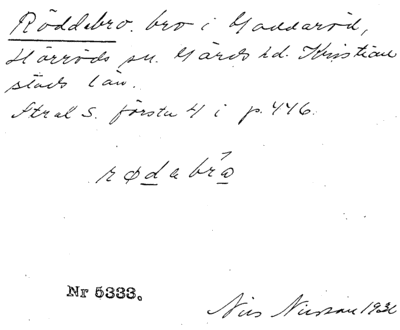 Röddebro. bro i Gaddaröd,
Hörröds sn. Gärds hd. Kristian
stads län.
Stral s. första 4 i p. 446.
rødabrα
Nr 5333.
Nils Nilsson 1930